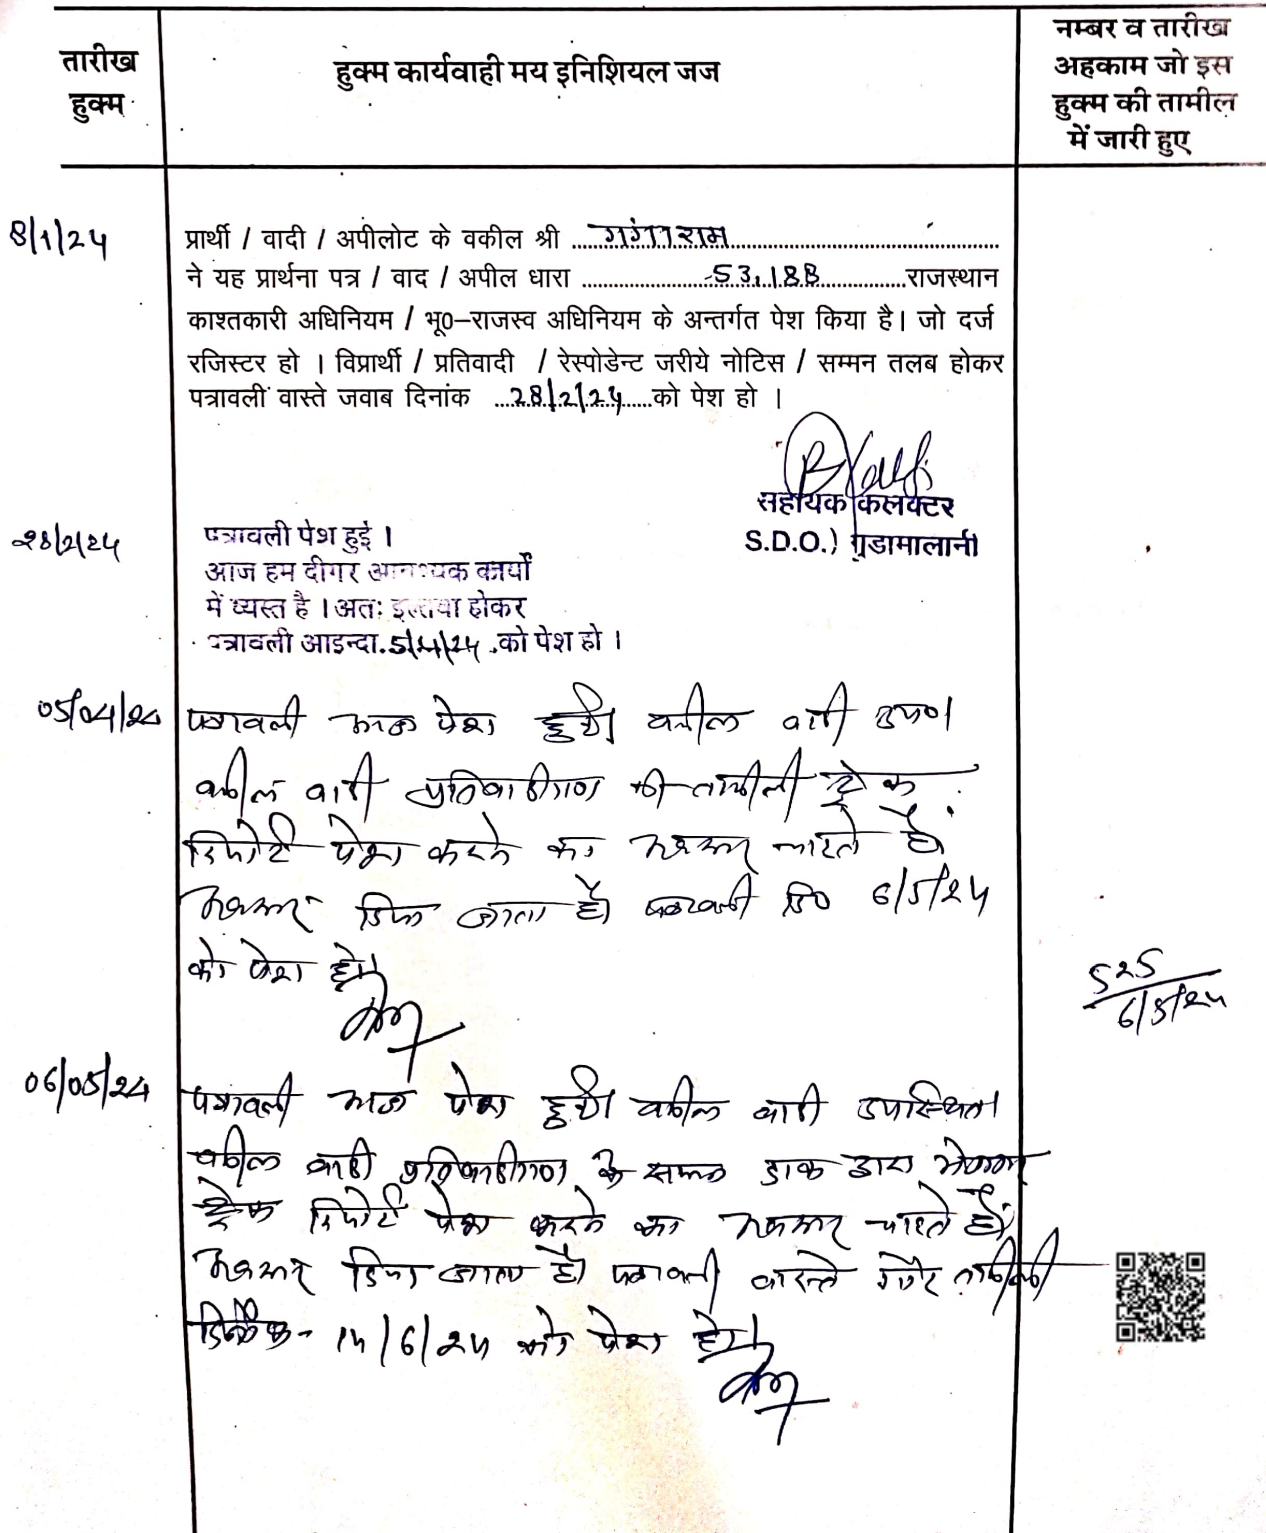 तारीख
हुक्म
हुक्म कार्यवाही मय इनिशियल जज
नम्बर व तारीख
अहकाम जो इस
हुक्म की तामील
में जारी हुए
8/1/24
प्रार्थी / वादी / अपीलोट के वकील श्री ....गंगाराम....
ने यह प्रार्थना पत्र / वाद / अपील धारा ....53,188....राजस्थान
काश्तकारी अधिनियम / भू०–राजस्व अधिनियम के अन्तर्गत पेश किया है। जो दर्ज
रजिस्टर हो । विप्रार्थी / प्रतिवादी / रेस्पोडेन्ट जरीये नोटिस / सम्मन तलब होकर
पत्रावली वास्ते जवाब दिनांक ....28/2/24....को पेश हो ।
सहायक कलक्टर
S.D.O.) गुडामालानी
28/2/24
पत्रावली पेश हुई ।
आज हम दीगर आवश्यक कार्यों
में व्यस्त है । अतः इल्तवा होकर
पत्रावली आइन्दा.5/4/24.को पेश हो ।
05/04/24
पत्रावली आज पेश हुयी। वकील वादी उप०।
वकील वादी प्रतिवादीगण की तामीली ट्रेक
रिपोर्ट पेश करने का अवसर चाहते है।
अवसर दिया जाता है। पत्रावली दि० 6/5/24
को पेश हो।
525
6/5/24
06/05/24
पत्रावली आज पेश हुयी। वकील वादी उपस्थित।
वकील वादी प्रतिवादीगण के सम्मन डाक द्वारा
ट्रेक रिपोर्ट पेश करने का अवसर चाहते है।
अवसर दिया जाता है। पत्रावली वास्ते गैर तामीली
दिनांक 14/6/24 को पेश हो।